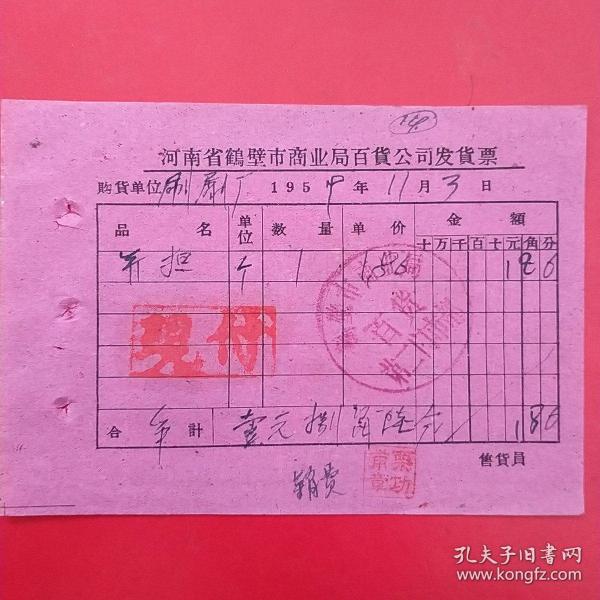 河南省鶴壁市商业局百貨公司发貨票
購貨单位 刷厂 1959年11月3日
品名 单位 数量 单价 金額
十万千百十元角分
个 1 1.86 1 8 6
现付
百货
合計 壹元捌角陆分 1 8 6
售貨員
孔夫子旧书网
www.kongfz.com